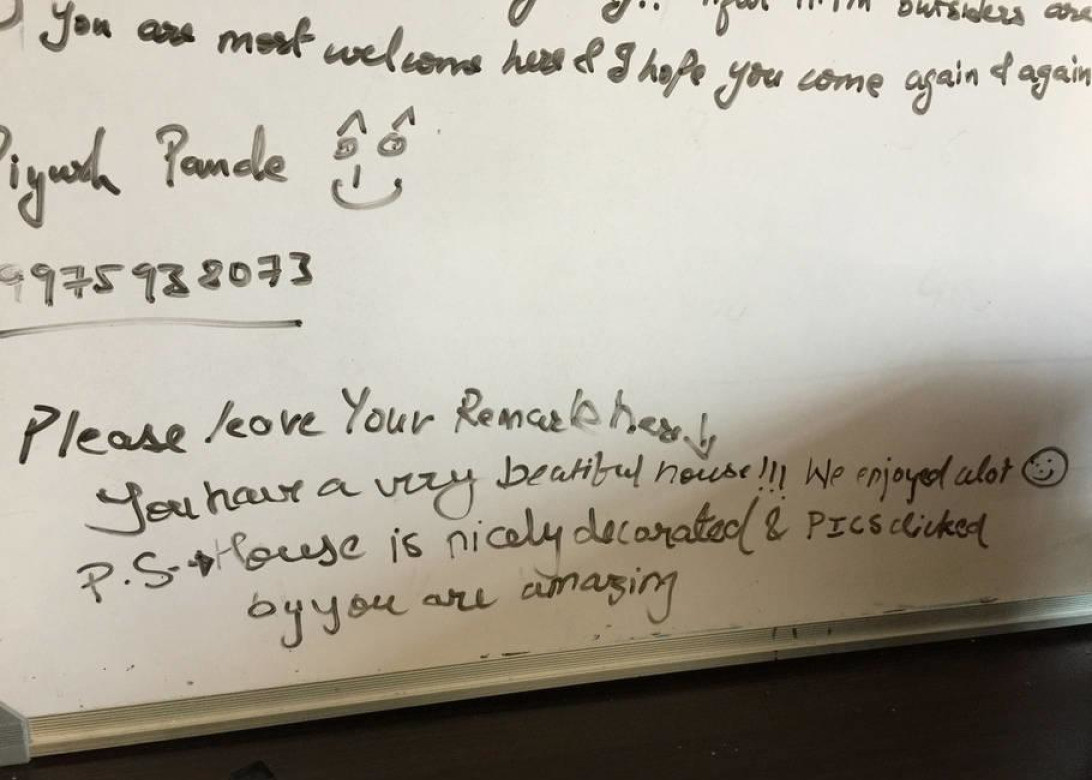 outsiders are
you are most welcome here & I hope you come again & again
Piyush Pande
9975938073
Please leave Your Remarks here ↓
You have a very beatiful house!!! We enjoyed alot
P.S → House is nicely decorated & PICS clicked
by you are amazing